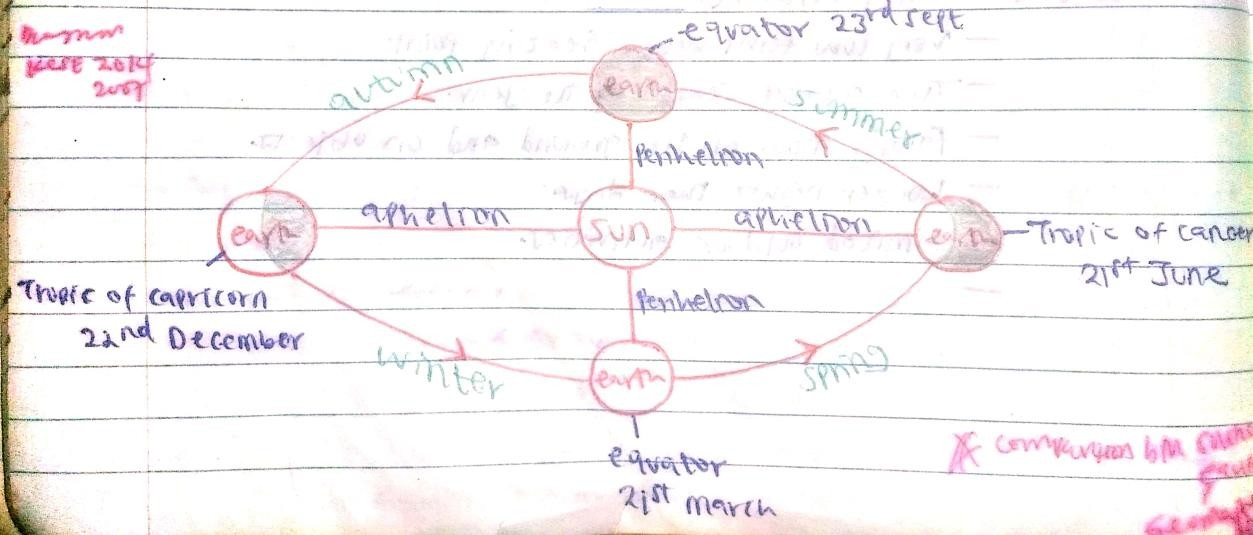 KCSE 2014
equator 23rd sept
autumn
earth
summer
Perihelion
aphelion
sun
aphelion
earth
earth
Tropic of cancer
21st June
Tropic of capricorn
22nd December
Perihelion
winter
earth
spring
equator
21st March